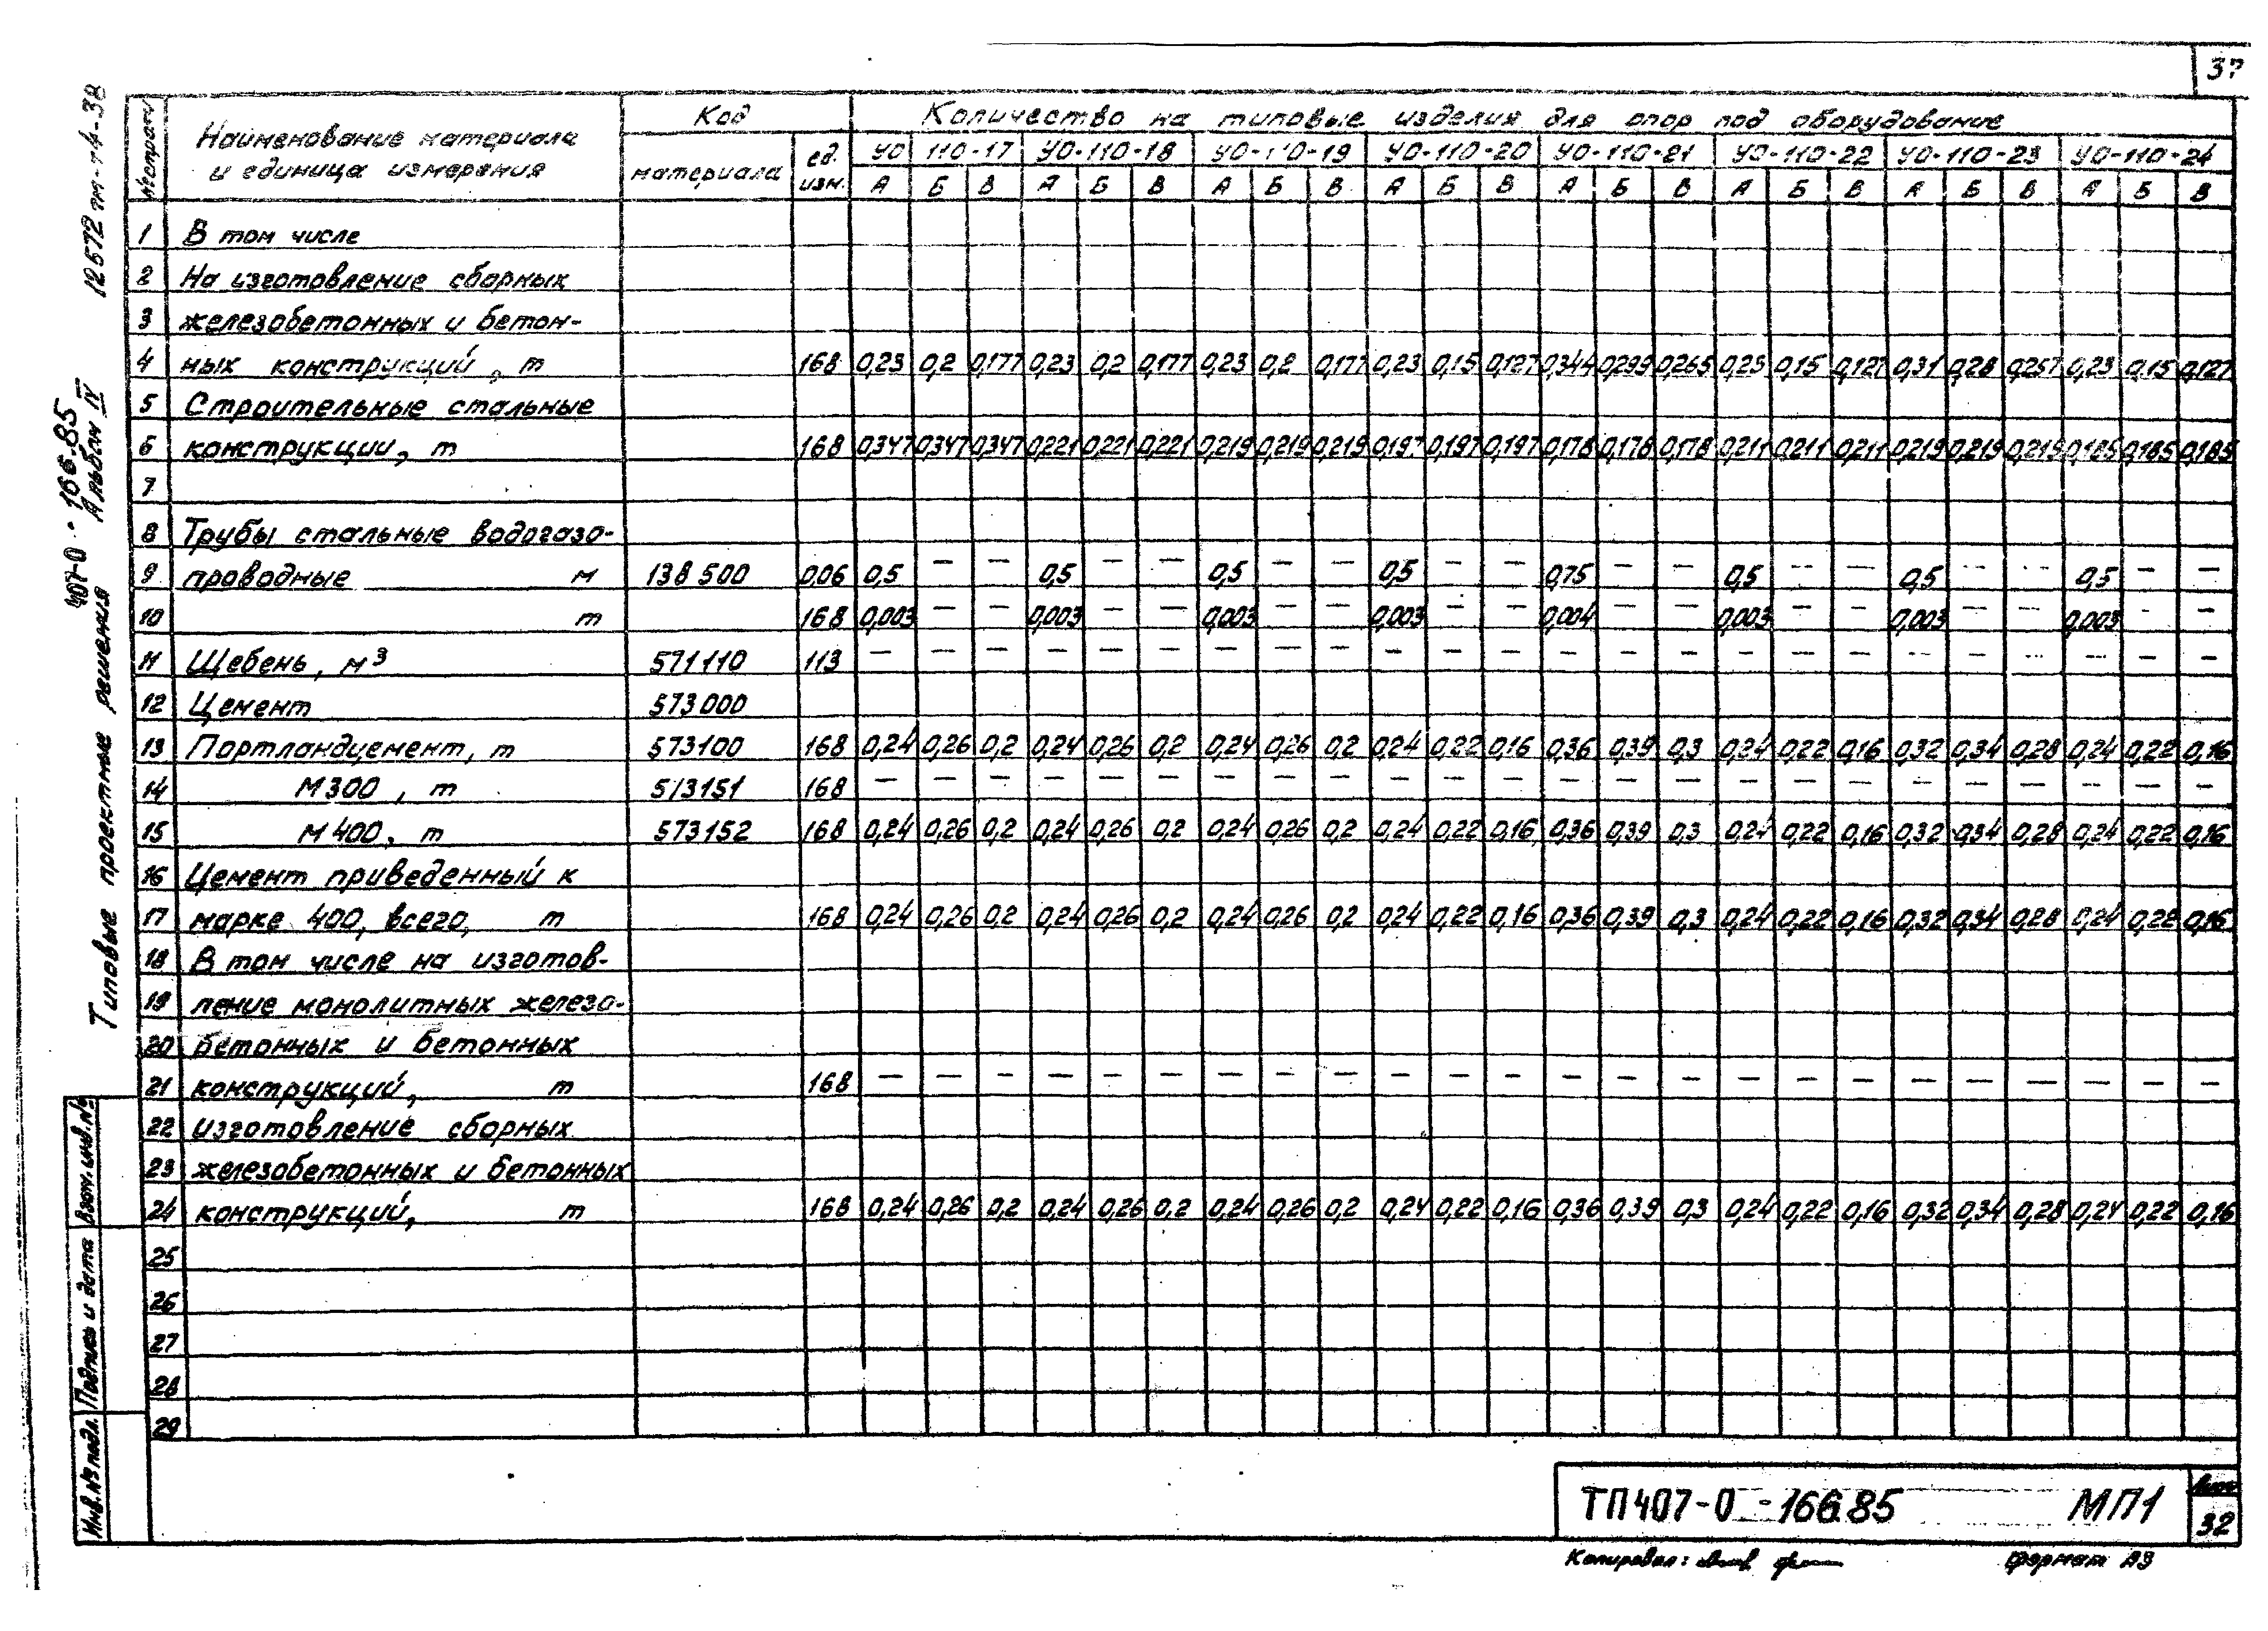 37
12572тм-т4-38
407-0-166.85
Альбом IV
Типовые проектные решения
Взам. инв. №
Подпись и дата
Инв. № подл.
№ строки Наименование материала и единица измерения Код Количество на типовые изделия для опор под оборудование
материала ед. изм. УО 110-17 УО-110-18 УО-110-19 УО-110-20 УО-110-21 УО-110-22 УО-110-23 УО-110-24
А Б В А Б В А Б В А Б В А Б В А Б В А Б В А Б В
1 В том числе
2 На изготовление сборных
3 железобетонных и бетон-
4 ных конструкций, т 168 0,23 0,2 0,177 0,23 0,2 0,177 0,23 0,2 0,177 0,23 0,15 0,127 0,344 0,299 0,265 0,23 0,15 0,127 0,31 0,28 0,257 0,23 0,15 0,127
5 Строительные стальные
6 конструкции, т 168 0,347 0,347 0,347 0,221 0,221 0,221 0,219 0,219 0,219 0,197 0,197 0,197 0,178 0,178 0,178 0,211 0,211 0,211 0,219 0,219 0,219 0,185 0,185 0,185
7
8 Трубы стальные водогазо-
9 проводные м 138500 006 0,5 — — 0,5 — — 0,5 — — 0,5 — — 0,75 — — 0,5 — — 0,5 — — 0,5 — —
10 т 168 0,003 — — 0,003 — — 0,003 — — 0,003 — — 0,004 — — 0,003 — — 0,003 — — 0,003 — —
11 Щебень, м3 571110 113 — — — — — — — — — — — — — — — — — — — — — — — —
12 Цемент 573000
13 Портландцемент, т 573100 168 0,24 0,26 0,2 0,24 0,26 0,2 0,24 0,26 0,2 0,24 0,22 0,16 0,36 0,39 0,3 0,24 0,22 0,16 0,32 0,34 0,28 0,24 0,22 0,16
14 М300, т 573151 168 — — — — — — — — — — — — — — — — — — — — — — — —
15 М400, т 573152 168 0,24 0,26 0,2 0,24 0,26 0,2 0,24 0,26 0,2 0,24 0,22 0,16 0,36 0,39 0,3 0,24 0,22 0,16 0,32 0,34 0,28 0,24 0,22 0,16
16 Цемент приведенный к
17 марке 400, всего, т 168 0,24 0,26 0,2 0,24 0,26 0,2 0,24 0,26 0,2 0,24 0,22 0,16 0,36 0,39 0,3 0,24 0,22 0,16 0,32 0,34 0,28 0,24 0,22 0,16
18 В том числе на изготов-
19 ление монолитных железо-
20 бетонных и бетонных
21 конструкций, т 168 — — — — — — — — — — — — — — — — — — — — — — — —
22 изготовление сборных
23 железобетонных и бетонных
24 конструкций, т 168 0,24 0,26 0,2 0,24 0,26 0,2 0,24 0,26 0,2 0,24 0,22 0,16 0,36 0,39 0,3 0,24 0,22 0,16 0,32 0,34 0,28 0,24 0,22 0,16
25
26
27
28
29
ТП407-0-166.85 МП1
Лист
32
Копировал:
Формат А3